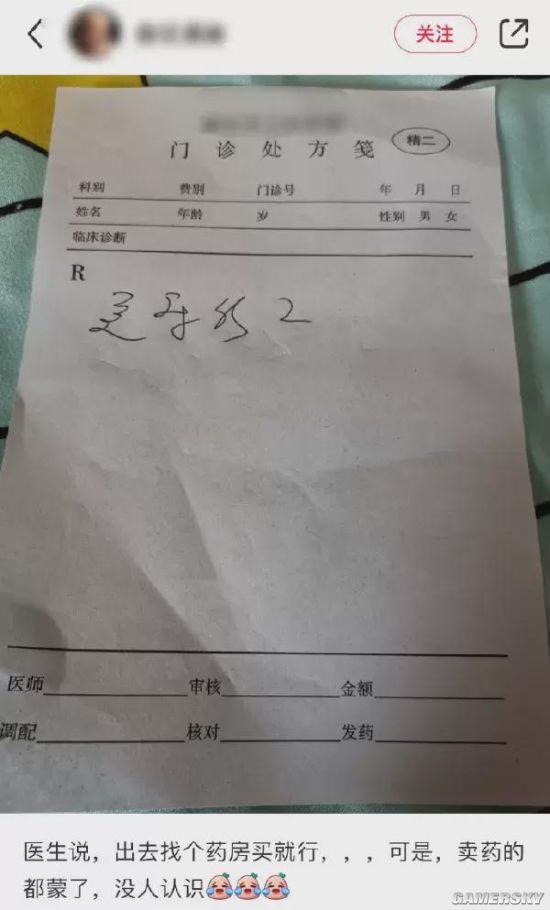 关注
门诊处方笺 精二
科别 费别 门诊号 年 月 日
姓名 年龄 岁 性别 男 女
临床诊断
R
医师 审核 金额
调配 核对 发药
医生说，出去找个药房买就行，，，可是，卖药的
都蒙了，没人认识
GAMERSKY